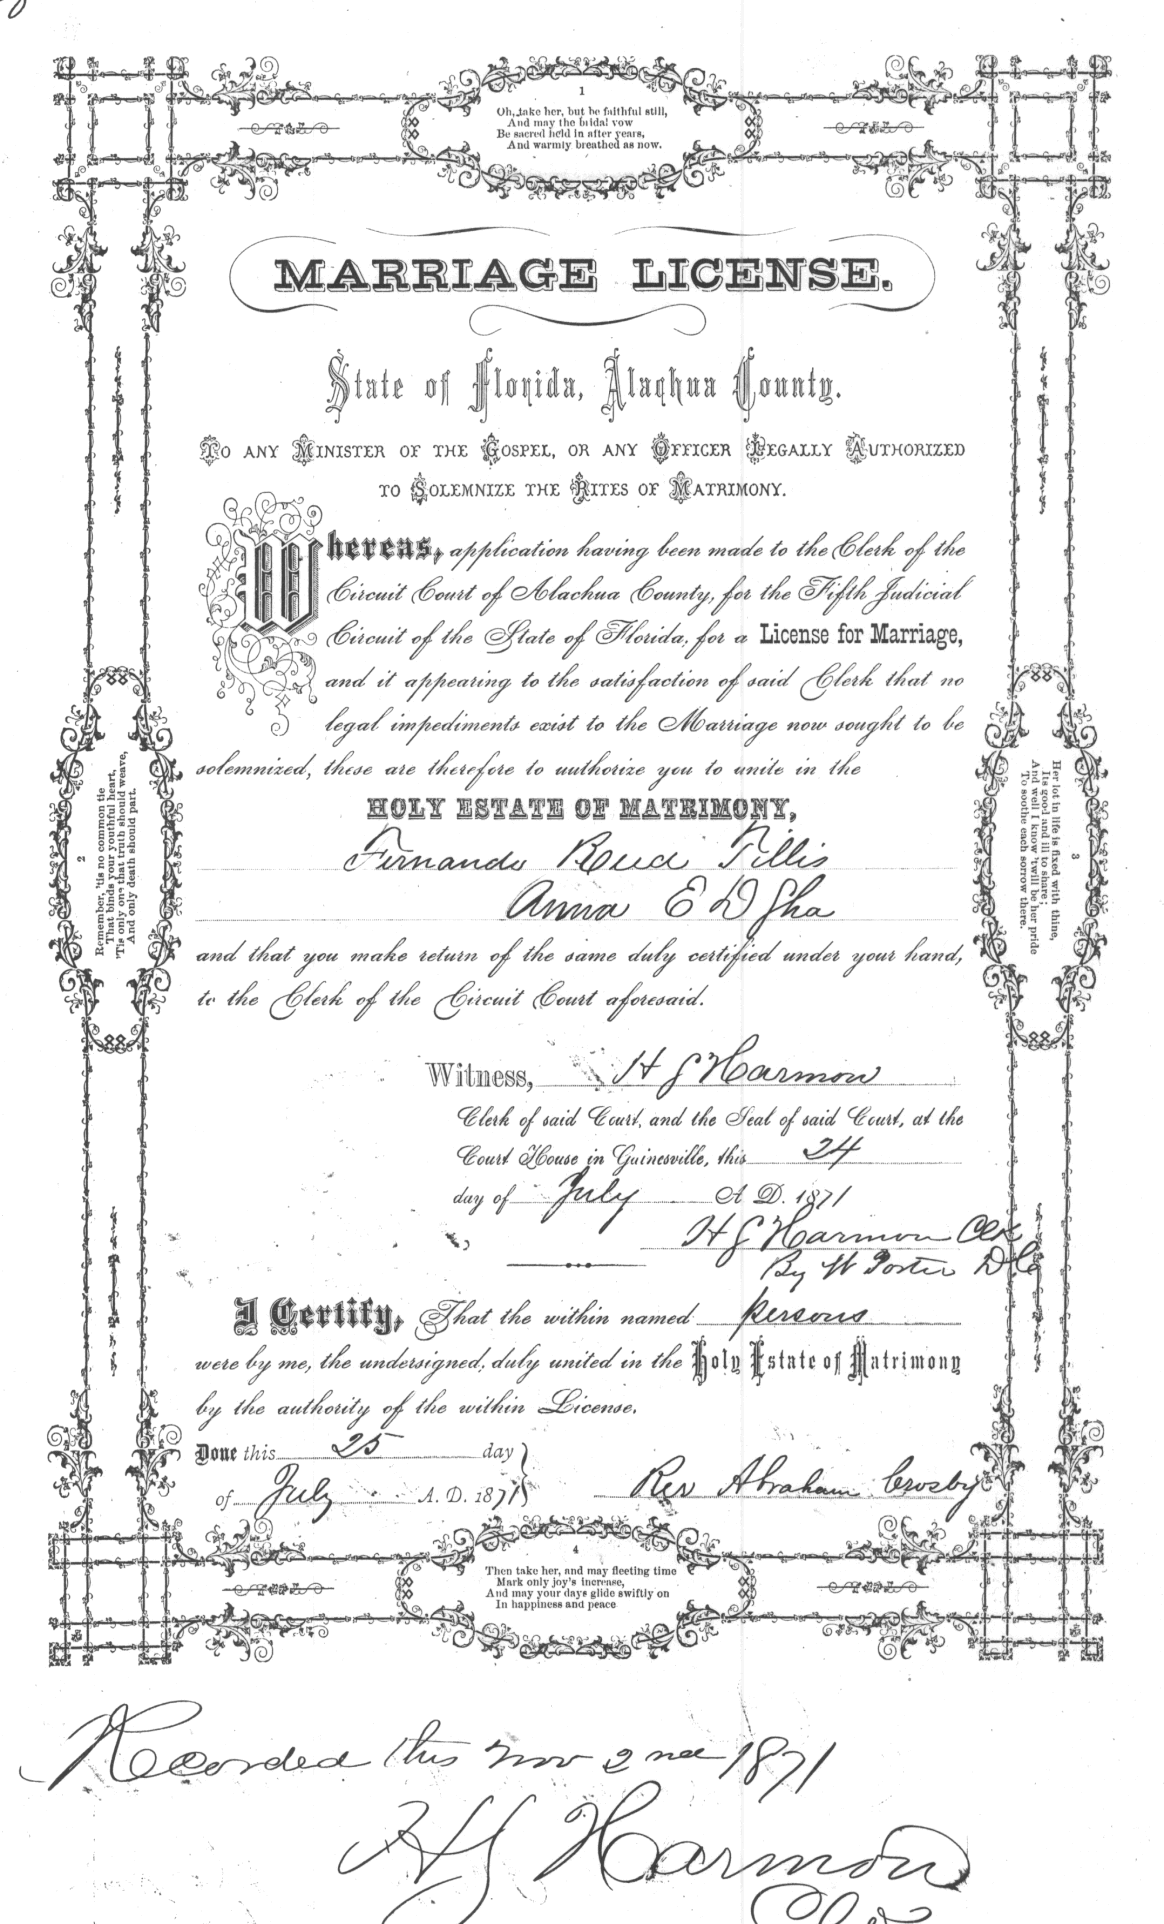 1
Oh, take her, but be faithful still,
And may the bridal vow
Be sacred held in after years,
And warmly breathed as now.
MARRIAGE LICENSE.
State of Florida, Alachua County.
TO ANY MINISTER OF THE GOSPEL, OR ANY OFFICER LEGALLY AUTHORIZED
TO SOLEMNIZE THE RITES OF MATRIMONY.
Whereas, application having been made to the Clerk of the
Circuit Court of Alachua County, for the Fifth Judicial
Circuit of the State of Florida, for a License for Marriage,
and it appearing to the satisfaction of said Clerk that no
legal impediments exist to the Marriage now sought to be
solemnized, these are therefore to authorize you to unite in the
HOLY ESTATE OF MATRIMONY,
Fernando Tillis
Anna E D
and that you make return of the same duly certified under your hand,
to the Clerk of the Circuit Court aforesaid.
Witness, H S Harmon
Clerk of said Court, and the Seal of said Court, at the
Court House in Gainesville, this 24
day of July A D. 1871
H S Harmon Clk
By W Porter D C
I Certify, That the within named persons
were by me, the undersigned, duly united in the Holy Estate of Matrimony
by the authority of the within License.
Done this 25 day
of July A. D. 1871
Rev Abraham Crosby
2
Remember, 'tis no common tie
That binds your youthful heart,
'Tis one that only truth should weave,
And only death should part.
3
Her lot in life is fixed with thine,
Its good and ill to share;
And well I know 'twill be her pride
To soothe each sorrow there.
4
Then take her, and may fleeting time
Mark only joy's increase,
And may your days glide swiftly on
In happiness and peace
Recorded this Nov 2nd 1871
H S Harmon
Clk